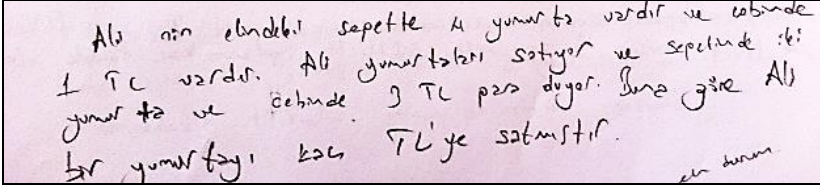 Ali nin elindeki sepette 4 yumurta vardır ve cebinde
1 TL vardır. Ali yumurtaları satıyor ve sepetinde iki
yumurta ve cebinde 3 TL para duyor. Buna göre Ali
bir yumurtayı kaç TL'ye satmıştır.
durum